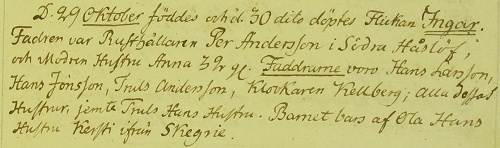 D. 29 Oktober föddes och d. 30 dito döptes Flickan Ingar.
Fadren var Rusthållaren Per Andersson i Södra Håslöf,
och Modren Hustru Anna 32 år gl. Faddrarne voro Hans Larsson,
Hans Jönsson, Truls Andersson, Klockaren Kellberg; alla dessas
Hustrur, jemte Truls Hans Hustru. Barnet bars af Ola Hans
Hustru Kersti ifrån Skegrie.